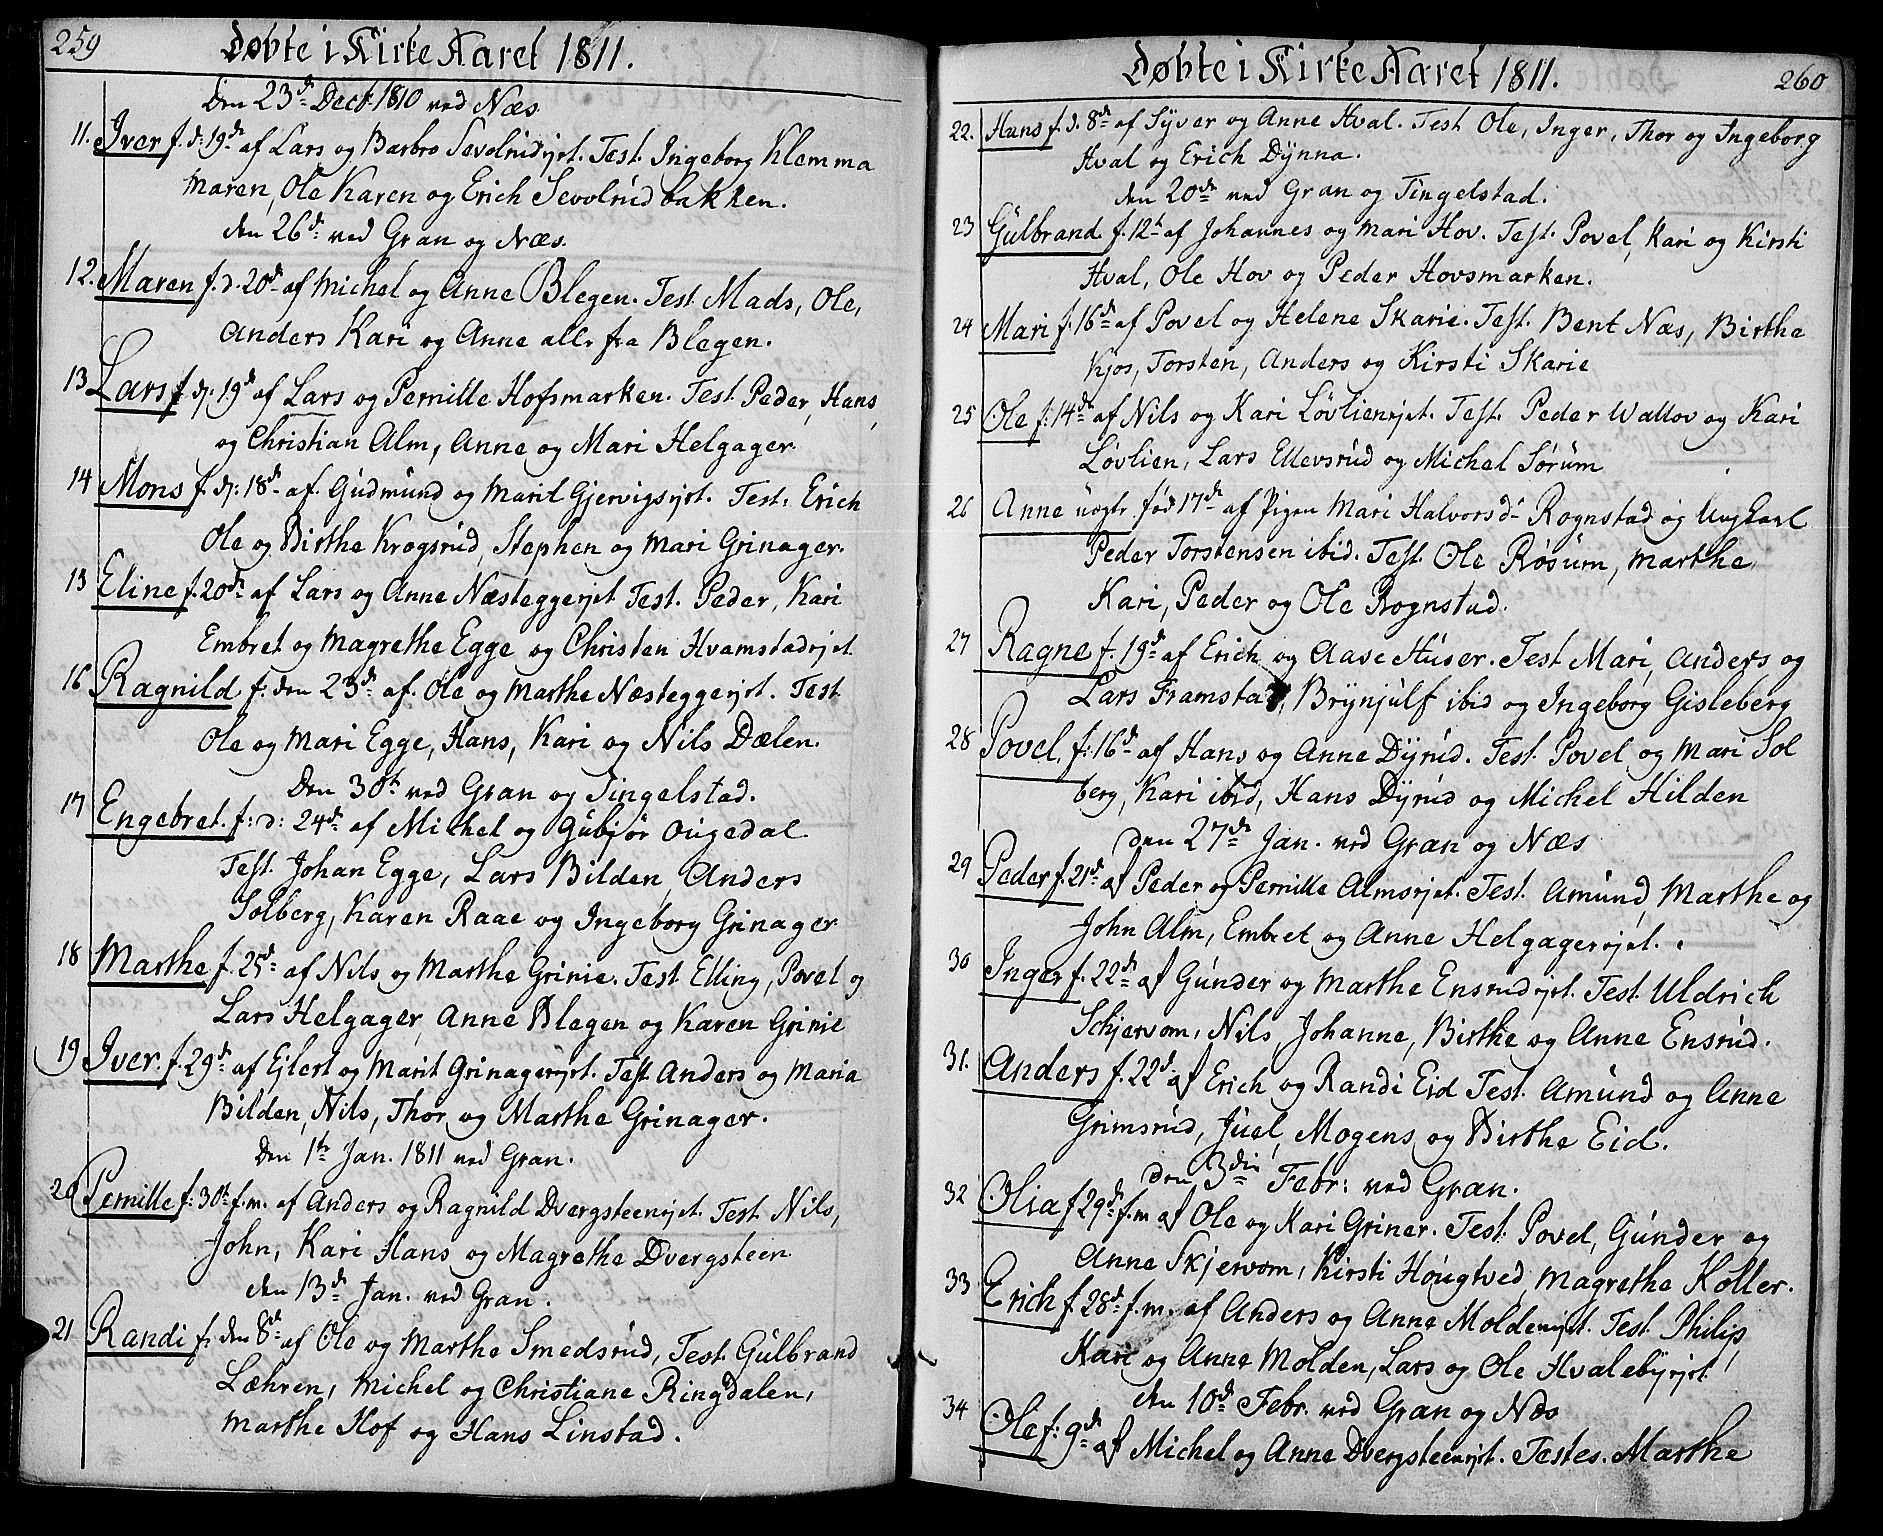 259
Døbte i Kirke Aaret 1811.
Den 23d Decb. 1810 ved Næs
11. Iver f. d: 19d af Lars og Barbro Sevolrudejet. Test. Ingeborg Klemma
Maren, Ole Karen og Erich Sevolrud bakken.
den 26d ved Gran og Næs.
12. Maren f. d. 20d af Michel og Anne Blegen. Test. Mads, Ole,
Anders Kari og Anne alle fra Blegen.
13 Lars f. d: 19d af Lars og Pernille Hofsmarken. Test. Peder, Hans,
og Christian Alm, Anne og Mari Helgager
14 Mons f. d: 18d af Gudmund og Marit Gjervigsejet. Test: Erich
Ole og Birthe Krogsrud, Stephen og Mari Grinager.
15 Eline f. 20d af Lars og Anne Næsteggejet Test. Peder, Kari
Embret og Magrethe Egge og Christen Hvamstadejet
16 Ragnild f: den 23d af Ole og Marthe Næsteggejet. Test
Ole og Mari Egge, Hans, Kari og Nils Dælen.
Den 30te ved Gran og Tingelstad.
17 Engebret. f: d: 24d af Michel og Gubjør Ougedal
Test. Johan Egge, Lars Bilden, Anders
Solberg, Karen Raae og Ingeborg Grinager
18 Marthe f. 25d af Nils og Marthe Grinie. Test Elling, Povel og
Lars Helgager, Anne Blegen og Karen Grinie
19 Iver. f. 29d af Ejlert og Marit Grinagerejet. Test Anders og Maria
Bilden, Nils, Thor og Marthe Grinager.
Den 1te Jan. 1811 ved Gran.
20 Pernille f: 30te f.m. af Anders og Ragnild Dvergsteenejet. Test Nils,
John, Kari Hans og Magrethe Dvergsteen
den 13d Jan. ved Gran.
21 Randi f: den 8d af Ole og Marthe Smedsrud, Test. Gulbrand
Læhren, Michel og Christiane Ringdalen,
Marthe Hof og Hans Linstad.
Døbte i Kirke Aaret 1811.
260
22. Hans f. d. 8d af Syver og Anne Hval. Test Ole, Inger, Thor og Ingeborg
Hval og Erich Dynna.
den 20d ved Gran og Tingelstad.
23 Gulbrand. f. 12te af Johannes og Mari Hov. Test. Povel, Kari og Kirsti
Hval, Ole Hov og Peder Hovsmarken.
24 Mari f. 16d af Povel og Helene Skarie. Test. Bent Næs, Birthe
Kjos, Torsten, Anders og Kirsti Skarie
25 Ole f: 14d af Nils og Kari Løvlienejet. Test. Peder Wallov og Kari
Løvlien, Lars Ellevsrud og Michel Sørum
26 Anne uægte fød 17d af Pigen Mari Halvorsd. Rognstad og Ungkarl
Peder Torstensen ibid. Test. Ole Røsum, Marthe,
Kari, Peder og Ole Rognstad.
27 Ragne f. 19d af Erich og Aase Huser. Test Mari, Anders og
Lars Framstad, Brynjulf ibid og Ingeborg Gisleberg
28 Povel. f: 16d af Hans og Anne Dyrud. Test. Povel og Mari Sol
berg, Kari ibid, Hans Dyrud og Michel Hilden
den 27d Jan. ved Gran og Næs
29 Peder f. 21d af Peder og Pernille Almsejet. Test. Amund, Marthe og
John Alm, Embret og Anne Helgagerejet.
30 Inger f. 22d af Gunder og Marthe Ensrudejet. Test. Uldrich
Schjervom, Nils, Johanne, Birthe og Anne Ensrud.
31. Anders f. 22d af Erich og Randi Eid Test. Amund og Anne
Grimsrud, Juel, Mogens og Birthe Eid.
den 3die Febr: ved Gran.
32 Olia f 29d f.m af Ole og Kari Griner. Test. Povel, Gunder og
Anne Skjervom, Kirsti Hougtved, Magrethe Koller.
33 Erich f. 28d f.m. af Anders og Anne Moldenejet. Test. Philip,
Kari og Anne Molden, Lars og Ole Hvalebyejet.
den 10d Febr. ved Gran og Næs
34 Ole f: 9d af Michel og Anne Dvergsteenejet. Testes. Marthe